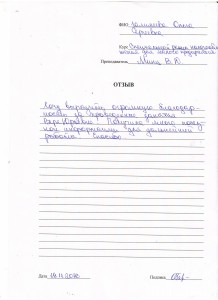 ФИО Залишева Анна
Сергеевна
Курс Специальный режим налогообло-
жения для малого предприятия
Преподаватель Минц В. Ю.
ОТЗЫВ
Хочу выразить огромную благодар-
ность за проведённые занятия
Вере Юрьевне! Получила много полез-
ной информации для дальнейшей
работы. Спасибо
Дата
Подпись